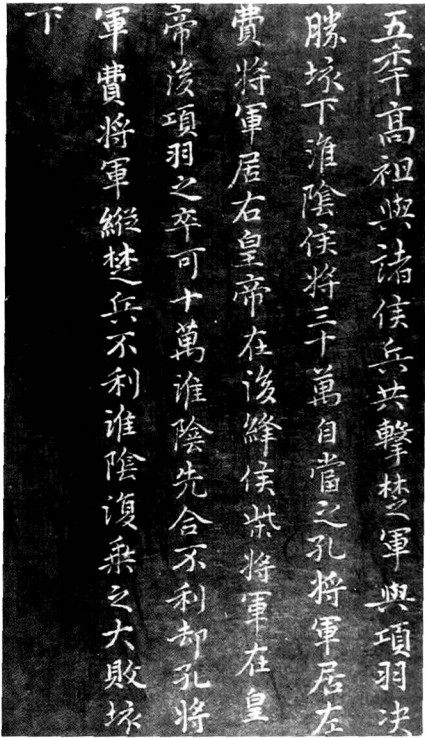 五年高祖與諸侯兵共擊楚軍與項羽决
勝垓下淮陰侯將三十萬自當之孔將軍居左
費將軍居右皇帝在後絳侯柴將軍在皇
帝後項羽之卒可十萬淮陰先合不利却孔將
軍費將軍縱楚兵不利淮陰復乘之大敗垓
下